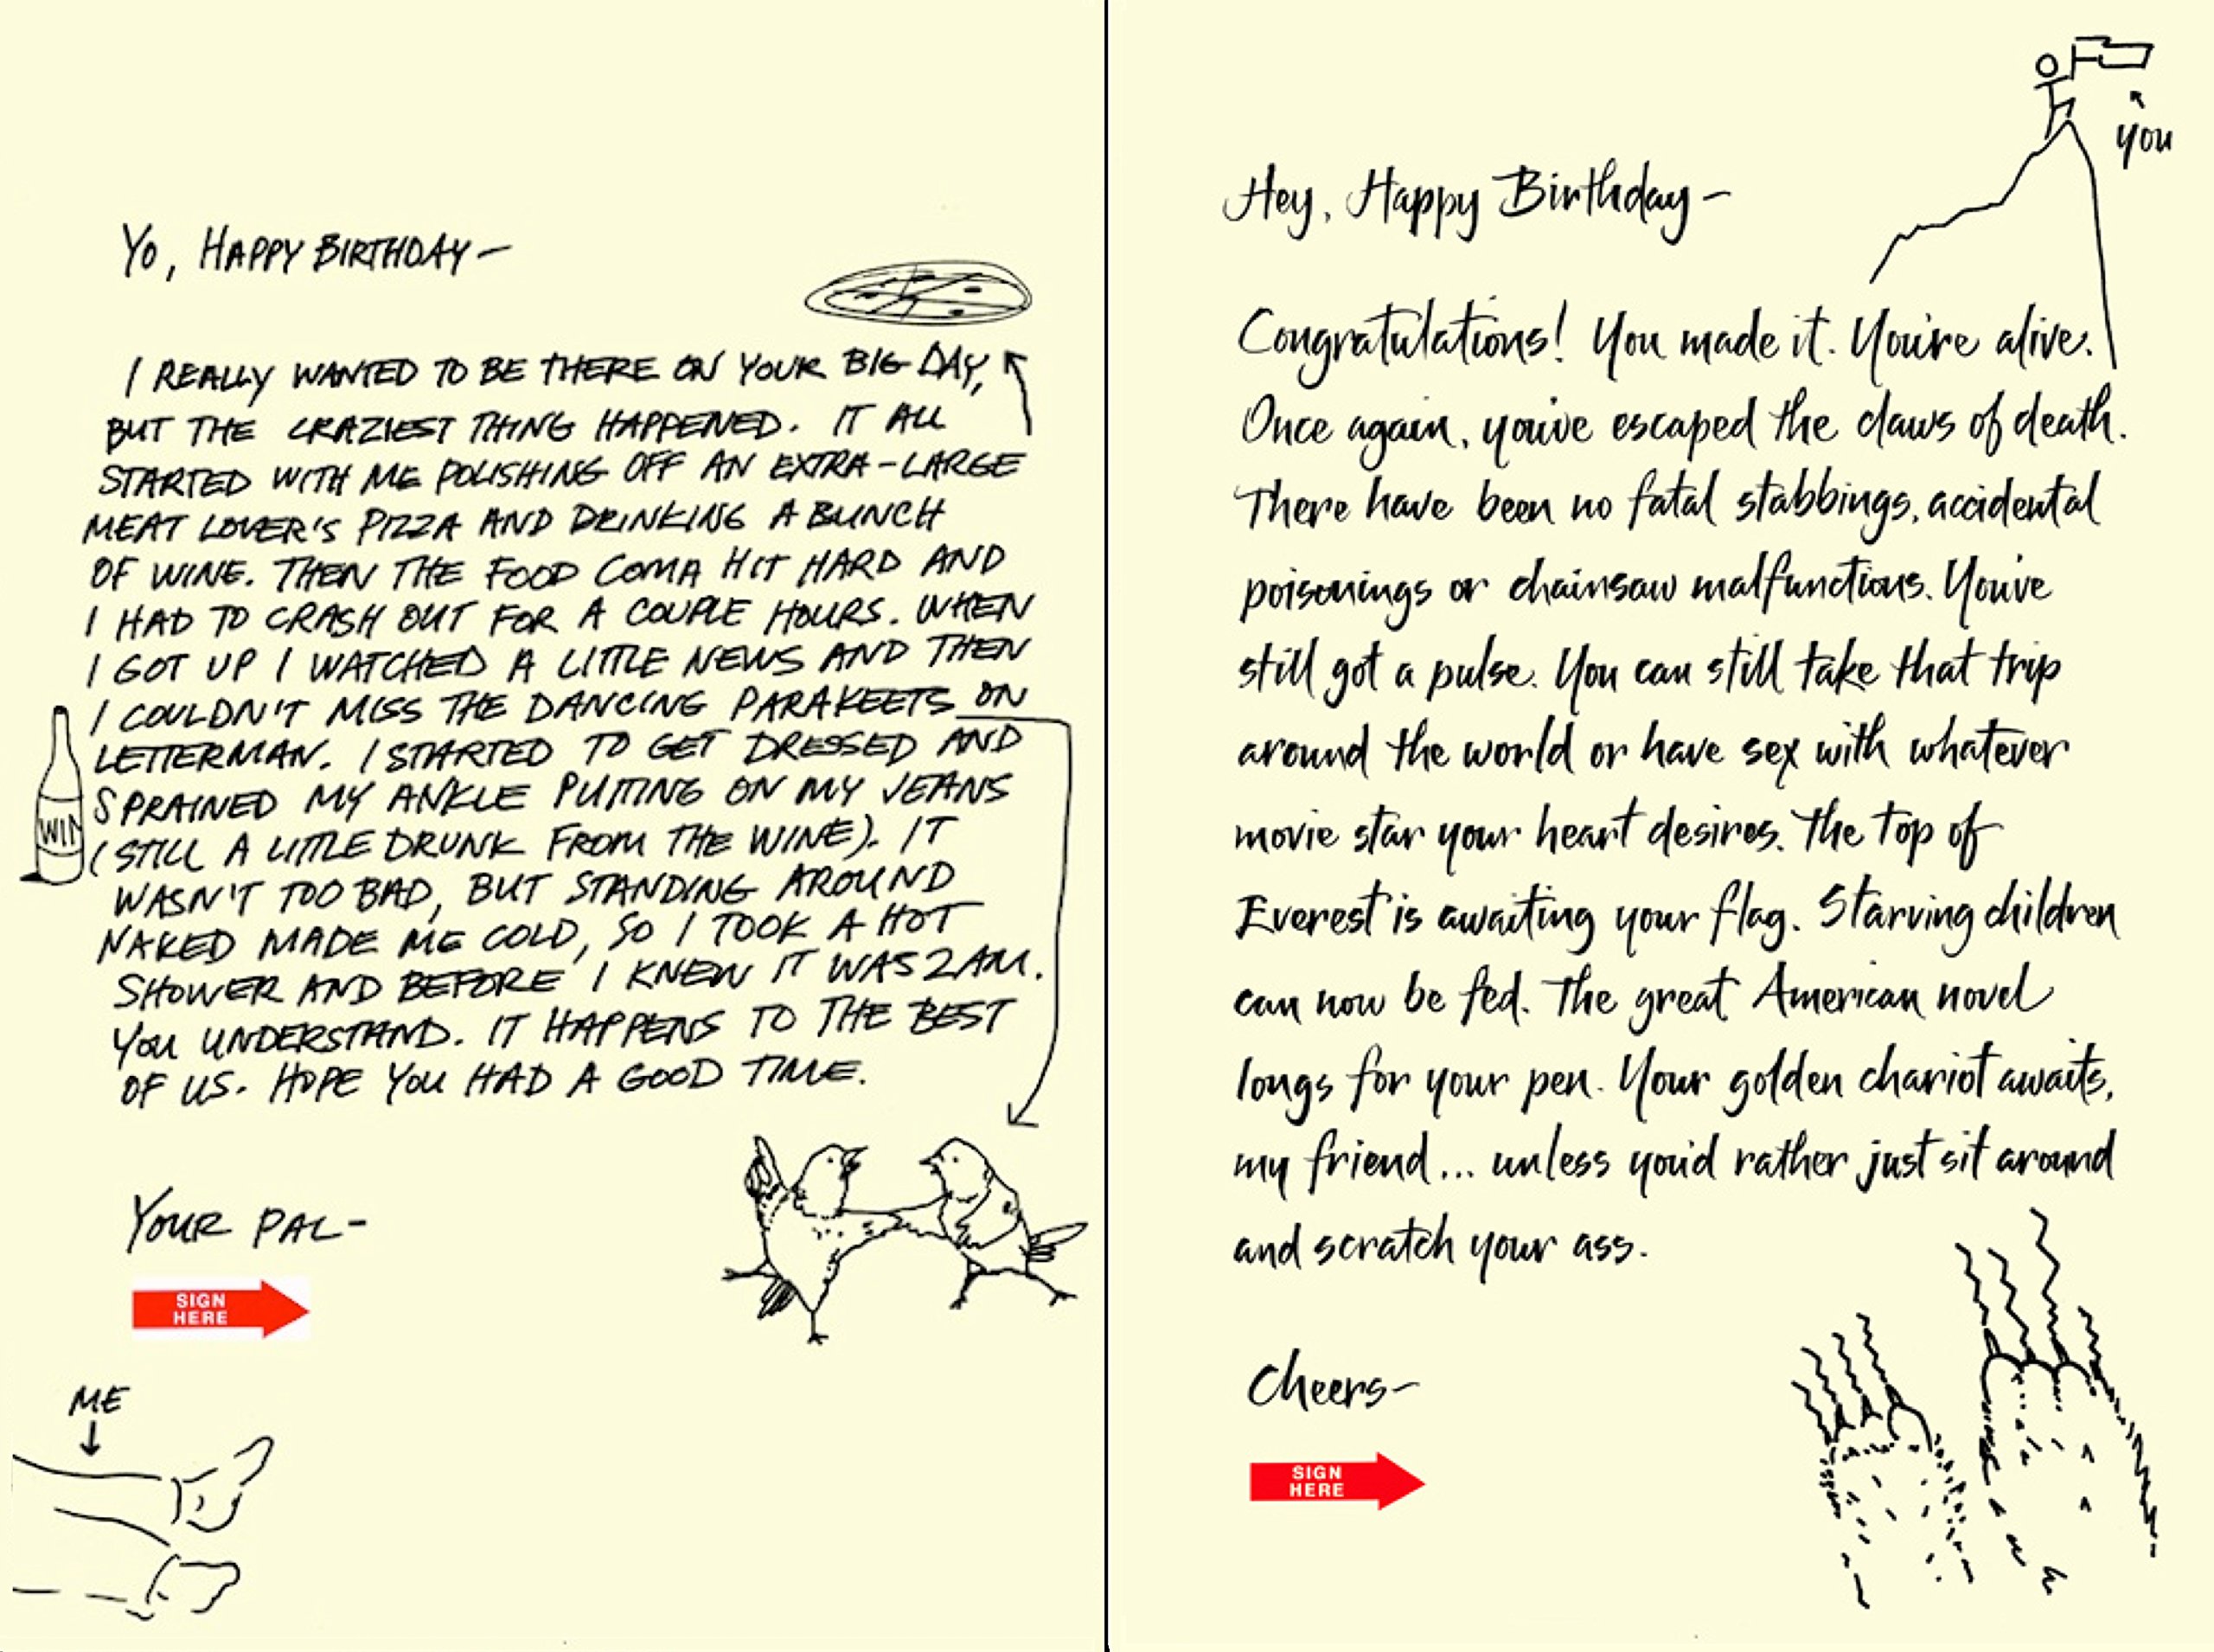 Yo, HAPPY BIRTHDAY—
I REALLY WANTED TO BE THERE ON YOUR BIG DAY,
BUT THE CRAZIEST THING HAPPENED. IT ALL
STARTED WITH ME POLISHING OFF AN EXTRA-LARGE
MEAT LOVER'S PIZZA AND DRINKING A BUNCH
OF WINE. THEN THE FOOD COMA HIT HARD AND
I HAD TO CRASH OUT FOR A COUPLE HOURS. WHEN
I GOT UP I WATCHED A LITTLE NEWS AND THEN
I COULDN'T MISS THE DANCING PARAKEETS ON
LETTERMAN. I STARTED TO GET DRESSED AND
SPRAINED MY ANKLE PUTTING ON MY JEANS
(STILL A LITTLE DRUNK FROM THE WINE). IT
WASN'T TOO BAD, BUT STANDING AROUND
NAKED MADE ME COLD, SO I TOOK A HOT
SHOWER AND BEFORE I KNEW IT WAS 2AM.
YOU UNDERSTAND. IT HAPPENS TO THE BEST
OF US. HOPE YOU HAD A GOOD TIME.
WIN
YOUR PAL—
SIGN
HERE
ME
you
Hey, Happy Birthday—
Congratulations! You made it. You're alive.
Once again, you've escaped the claws of death.
There have been no fatal stabbings, accidental
poisonings or chainsaw malfunctions. You've
still got a pulse. You can still take that trip
around the world or have sex with whatever
movie star your heart desires. The top of
Everest is awaiting your flag. Starving children
can now be fed. The great American novel
longs for your pen. Your golden chariot awaits,
my friend... unless you'd rather just sit around
and scratch your ass.
Cheers—
SIGN
HERE